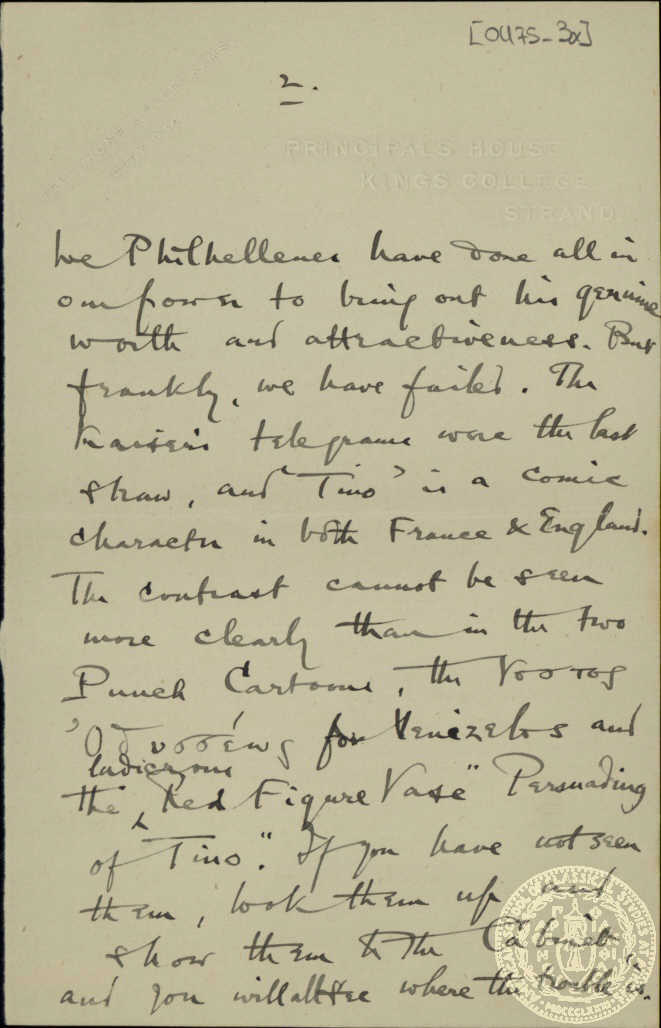 [OU75-3α]
2.
PRINCIPAL'S HOUSE
KINGS COLLEGE
STRAND
We Philhellenes have done all in
our power to bring out his genuine
worth and attractiveness. But
frankly, we have failed. The
Kaiser's telegrams were the last
straw, and 'Tino' is a comic
character in both France & England.
The contrast cannot be seen
more clearly than in the two
Punch Cartoons, the Νόστος
'Οδυσσέως for Venizelos and
the ludicrous Red Figure Vase "Persuading
of Tino." If you have not seen
them, look them up and
show them to the Cabinet,
and you will all see where the trouble is.